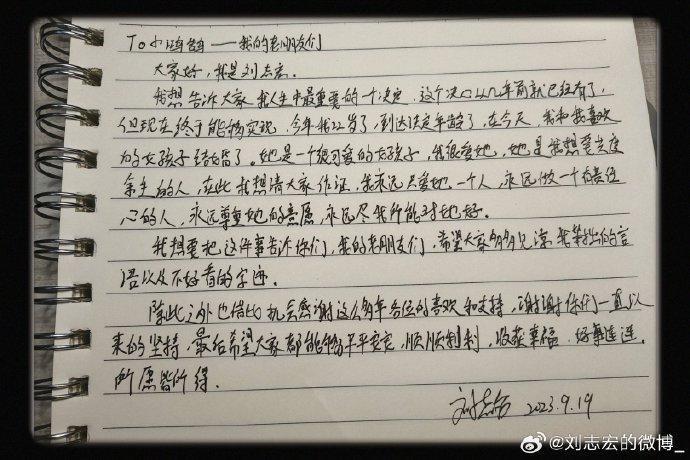 To 小鸿鹄——我的老朋友们
大家好，我是刘志宏。
我想告诉大家我人生中最重要的一个决定，这个决心从几年前就已经有了，
但现在终于能够实现，今年我22岁了，到达法定年龄了，在今天，我和我喜欢
的女孩子结婚了，她是一个很可爱的女孩子，我很爱她，她是我想要共度
余生的人，在此我想请大家作证，我永远只爱她一个人，永远做一个有责任
心的人，永远尊重她的意愿，永远尽我所能对她好。
我想要把这件事告诉你们，我的老朋友们，希望大家多多见谅我笨拙的言
语以及不好看的字迹。
除此之外也借此机会感谢这么多年各位的喜欢和支持，谢谢你们一直以
来的坚持，最后希望大家都能够平平安安，顺顺利利，收获幸福，好事连连，
所愿皆所得。
刘志宏 2023.9.19
@刘志宏的微博_